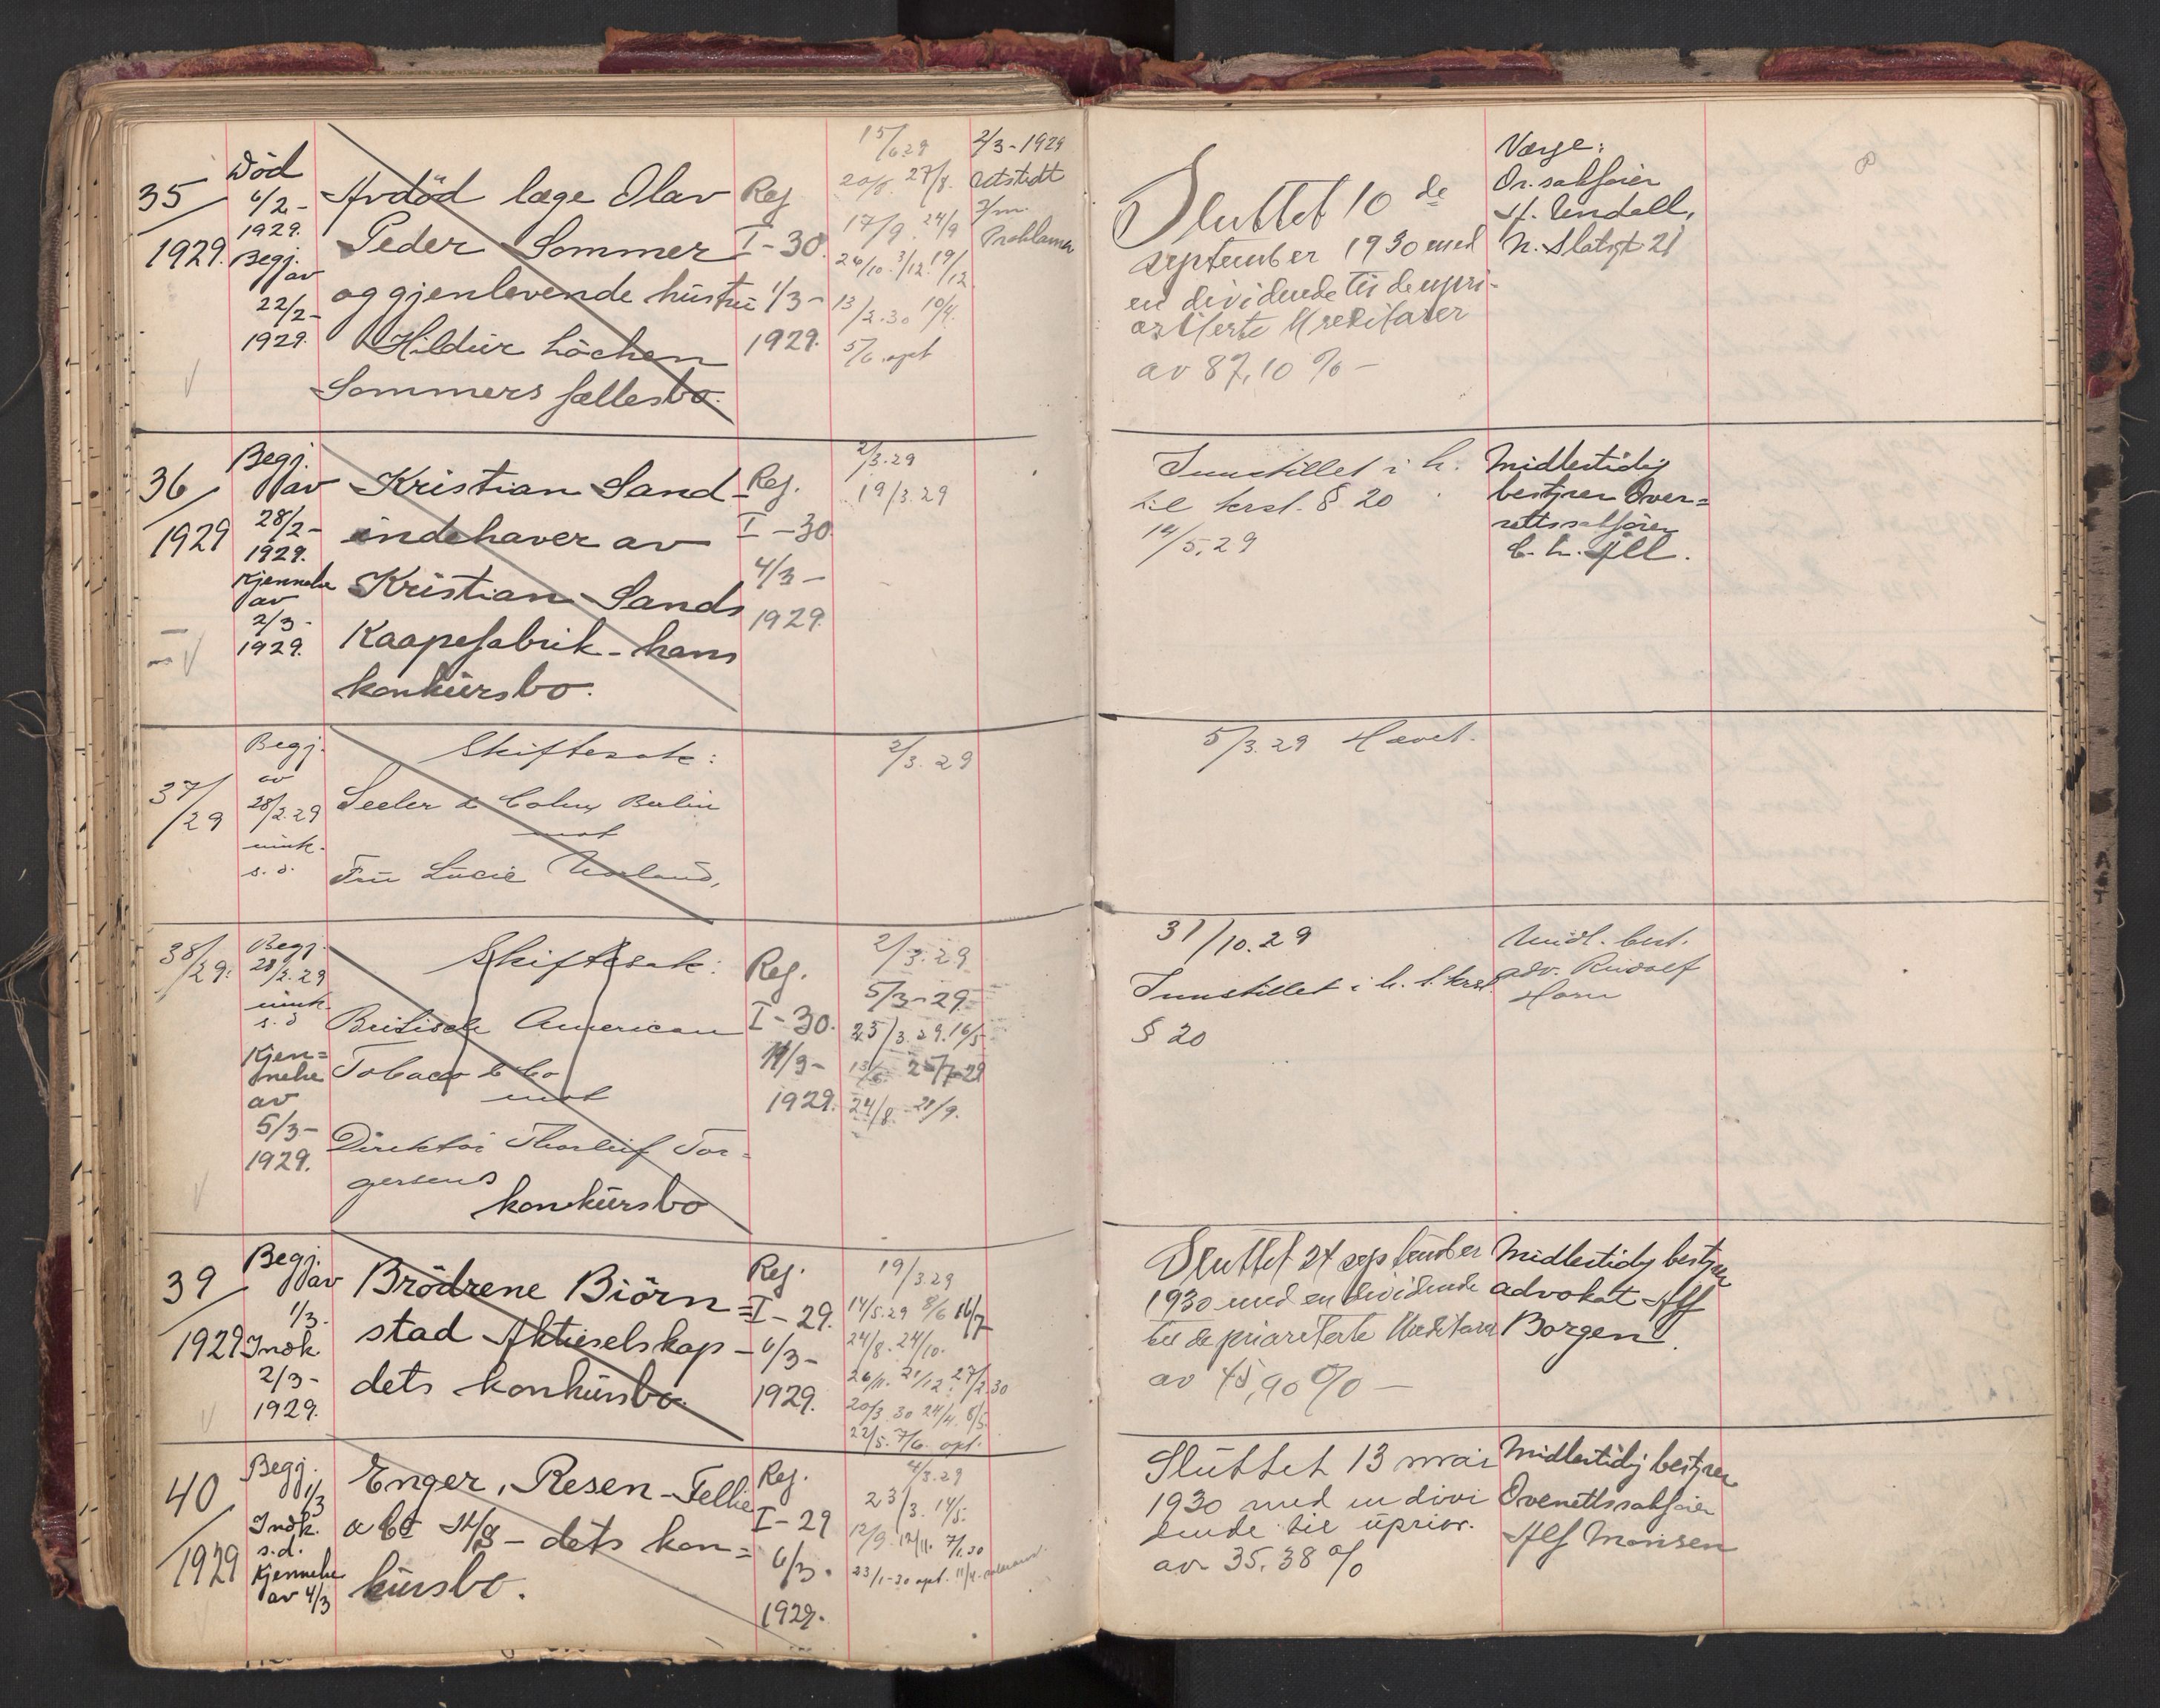 35/1929.
Död
6/2-
1929.
Begj.
av
22/2-
1929.
Avdöd læge Olav
Peder Sommer
og gjenlevende hustru
Hildur Löchen
Sommers fællesbo.
Reg
I-30.
1/3-
1929.
15/6.29
20/8. 27/8.
17/9. 24/9
26/10. 3/12. 19/12
13/2.30 10/4.
5/6. opt
2/3-1929
Utstedt
Proklama
Sluttet 10 de
september 1930 med
en dividende til de upri-
oriterte kreditorer
av 87,10 % -
Verge:
Or. sakfører
H. Undall,
N. Slotsgt 21
36/1929
Begj.
av
28/2-
1929.
Kjennelse
av
2/3-
1929.
Kristian Sand-
indehaver av
Kristian Sands
Kaapefabrik - hans
konkursbo.
Reg.
I-30.
4/3-
1929.
2/3.29
19/3.29
Innstillet i h.
til krsl. § 20
14/5.29
Midlertidig
bestyrer Over=
rettssakfører
37/29
Begj.
av
28/2.29
s.d.
Skiftesak:
Seeler & Berlin
mot
Fru Lucie
2/3.29
5/3.29 Hævet.
38/29.
Begj.
28/2.29
s.d
Kjen=
nelse
av
5/3-
1929.
Skiftesak:
British American
Tobacco & Co
mot
Direktør Thorleif Tor-
gersens
konkursbo
Reg.
I-30.
11/3-
1929.
2/3.29
5/3-29
25/3.29. 16/5
13/6. 25/7-29
24/8. 21/9.
31/10.29
Innstillet i h. t. krsl.
§ 20
Midl. best.
adv. Rudolf
Horn
39/1929
Begj.
av
1/3.
Indk.
2/3-
1929.
Brödrene Biörn=
stad Aktieselskap -
dets konkursbo.
Reg.
I-29.
6/3-
1929.
19/3.29
14/5.29 8/6 16/7
24/8. 24/10.
26/11. 21/12. 27/2.30
20/3.30 24/4. 8/5.
22/5. 7/6. opt.
Sluttet 24 september
1930 med en dividende
til de prioriterte kreditorer
av 45,90 % -
Midlertidig bestyrer
advokat Alf
Borgen.
40/1929
Begj.
1/3
Indk.
s.d.
Kjennelse
av 4/3
Enger, Resen-Fellie
& Co A/S - dets kon=
kursbo.
Reg.
I-29
6/3.
1929.
4/3.29
23/3. 14/5.
12/9. 12/11. 7/1.30
23/1-30 opt. 11/4.
Sluttet 13 mai
1930 med en divi
dende til uprior.
av 35.38 %
Midlertidig bestyrer
Overrettssakfører
Alf Monsen